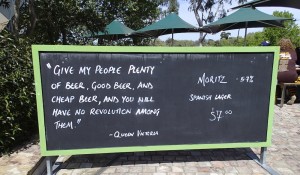 "GIVE MY PEOPLE PLENTY
OF BEER, GOOD BEER, AND
CHEAP BEER, AND YOU WILL
HAVE NO REVOLUTION AMONG
THEM."
- QUEEN VICTORIA
MORITZ
SPANISH LAGER
$7.00